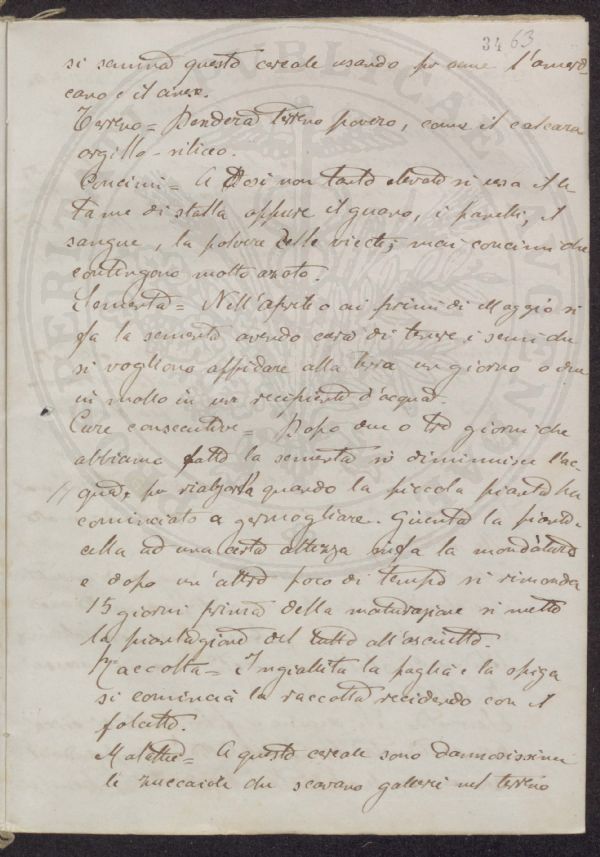 34 63
si semina questo cereale usando per anne l'ameri
cano e il cinese.
Terreno = Renderà terreno povero, come il calcara
argillo-siliceo.
Concimi = A dosi non tanto elevate si usa il le
tame di stalla oppure il guano, i panelli, il
sangue, la polvere delle vie etc; mai concimi che
contengono molto azoto.
Sementa = Nell'aprile o ai primi di Maggio si
fa la sementa avendo cura di tenere i semi che
si vogliono affidare alla terra un giorno o due
in mollo in un recipiente d'acqua.
Cure consecutive = Dopo due o tre giorni che
abbiamo fatto la sementa si diminuisce l'ac-
qua, per rialzarla quando la piccola pianta ha
cominciato a germogliare. Giunta la pianti-
cella ad una certa altezza si fa la mondatura
e dopo un'altro poco di tempo si rimonda
15 giorni prima della maturazione si mette
la piantagione del tutto all'asciutto.
Raccolta = Ingiallita la paglia e la spiga
si comincia la raccolta recidendo con il
falcetto.
Malattie = A questo cereale sono dannosissimi
le zuccaiole che scavano gallerie nel terreno